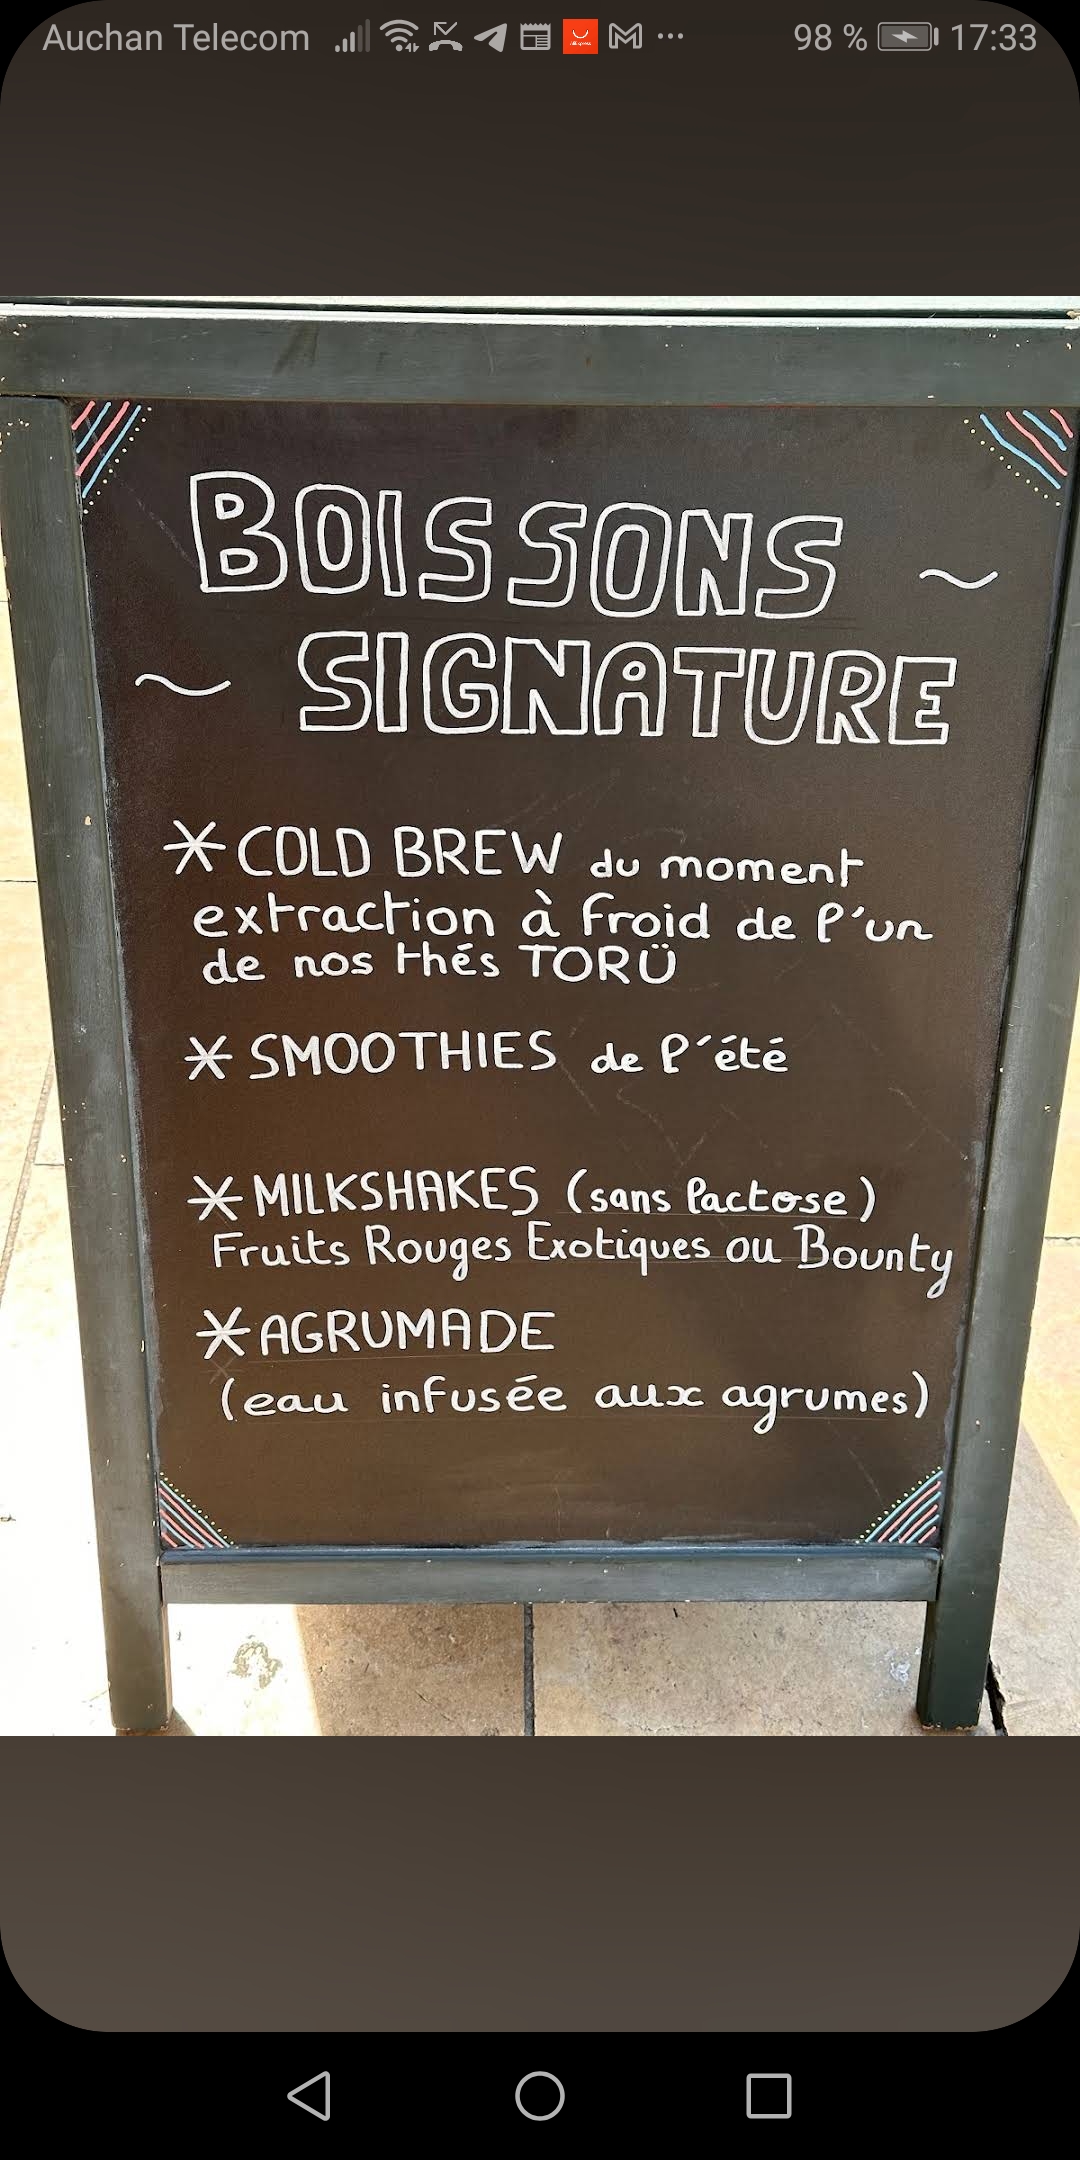 Auchan Telecom 98 % 17:33
BOISSONS ~
~ SIGNATURE
* COLD BREW du moment
extraction à froid de l'un
de nos thés TORÜ
* SMOOTHIES de l'été
* MILKSHAKES (sans lactose)
Fruits Rouges Exotiques ou Bounty
* AGRUMADE
(eau infusée aux agrumes)